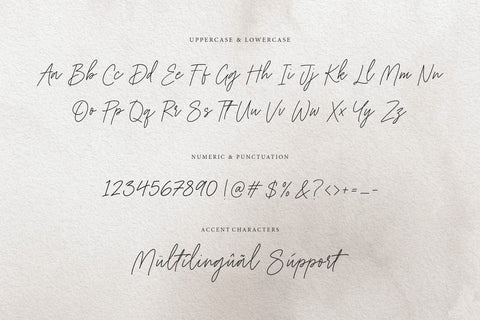 UPPERCASE & LOWERCASE
Aa Bb Cc Dd Ee Ff Gg Hh Ii Jj Kk Ll Mm Nn
Oo Pp Qq Rr Ss Tt Uu Vv Ww Xx Yy Zz
NUMERIC & PUNCTUATION
1234567890 !@# $% &?<>+=_-
ACCENT CHARACTERS
Mültilingûãl Súppört